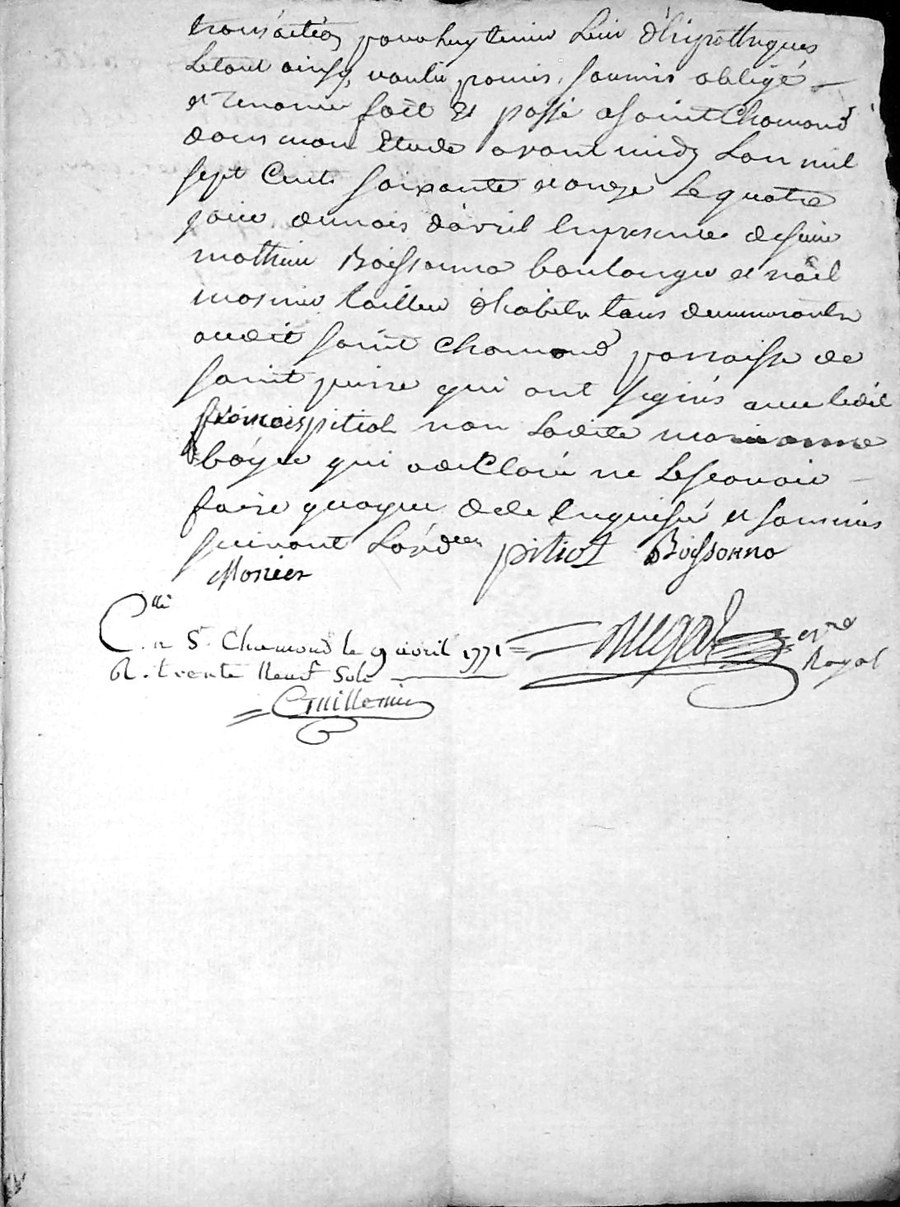 transaction pour luy tenir Lieu d'hipotheques
Letout ainsy voulu promis, soumis obligé
et renoncé fait et passé a saint Chamond
dans mon Etude avant midy Lan mil
sept Cent soixante et onze Le quatre
jour du mois d'avril En presence de sieur
mathieu Boissonna boulanger et noël
mosnier tailleur d'habits tous demeurants
audit saint Chamond parroisse de
saint pierre qui ont signés avec ledit
françois pitiot non Ladite marianne
boyer qui a declaré ne Lesçavoir
faire quoyque de ce Enquise et sommée
suivant Lord.ces pitiot Boissonna
Monier
C.llé
C. a St. Chamond le 9 avril 1771
R. trente Neuf Sols
Guillemin
no.re
Royal